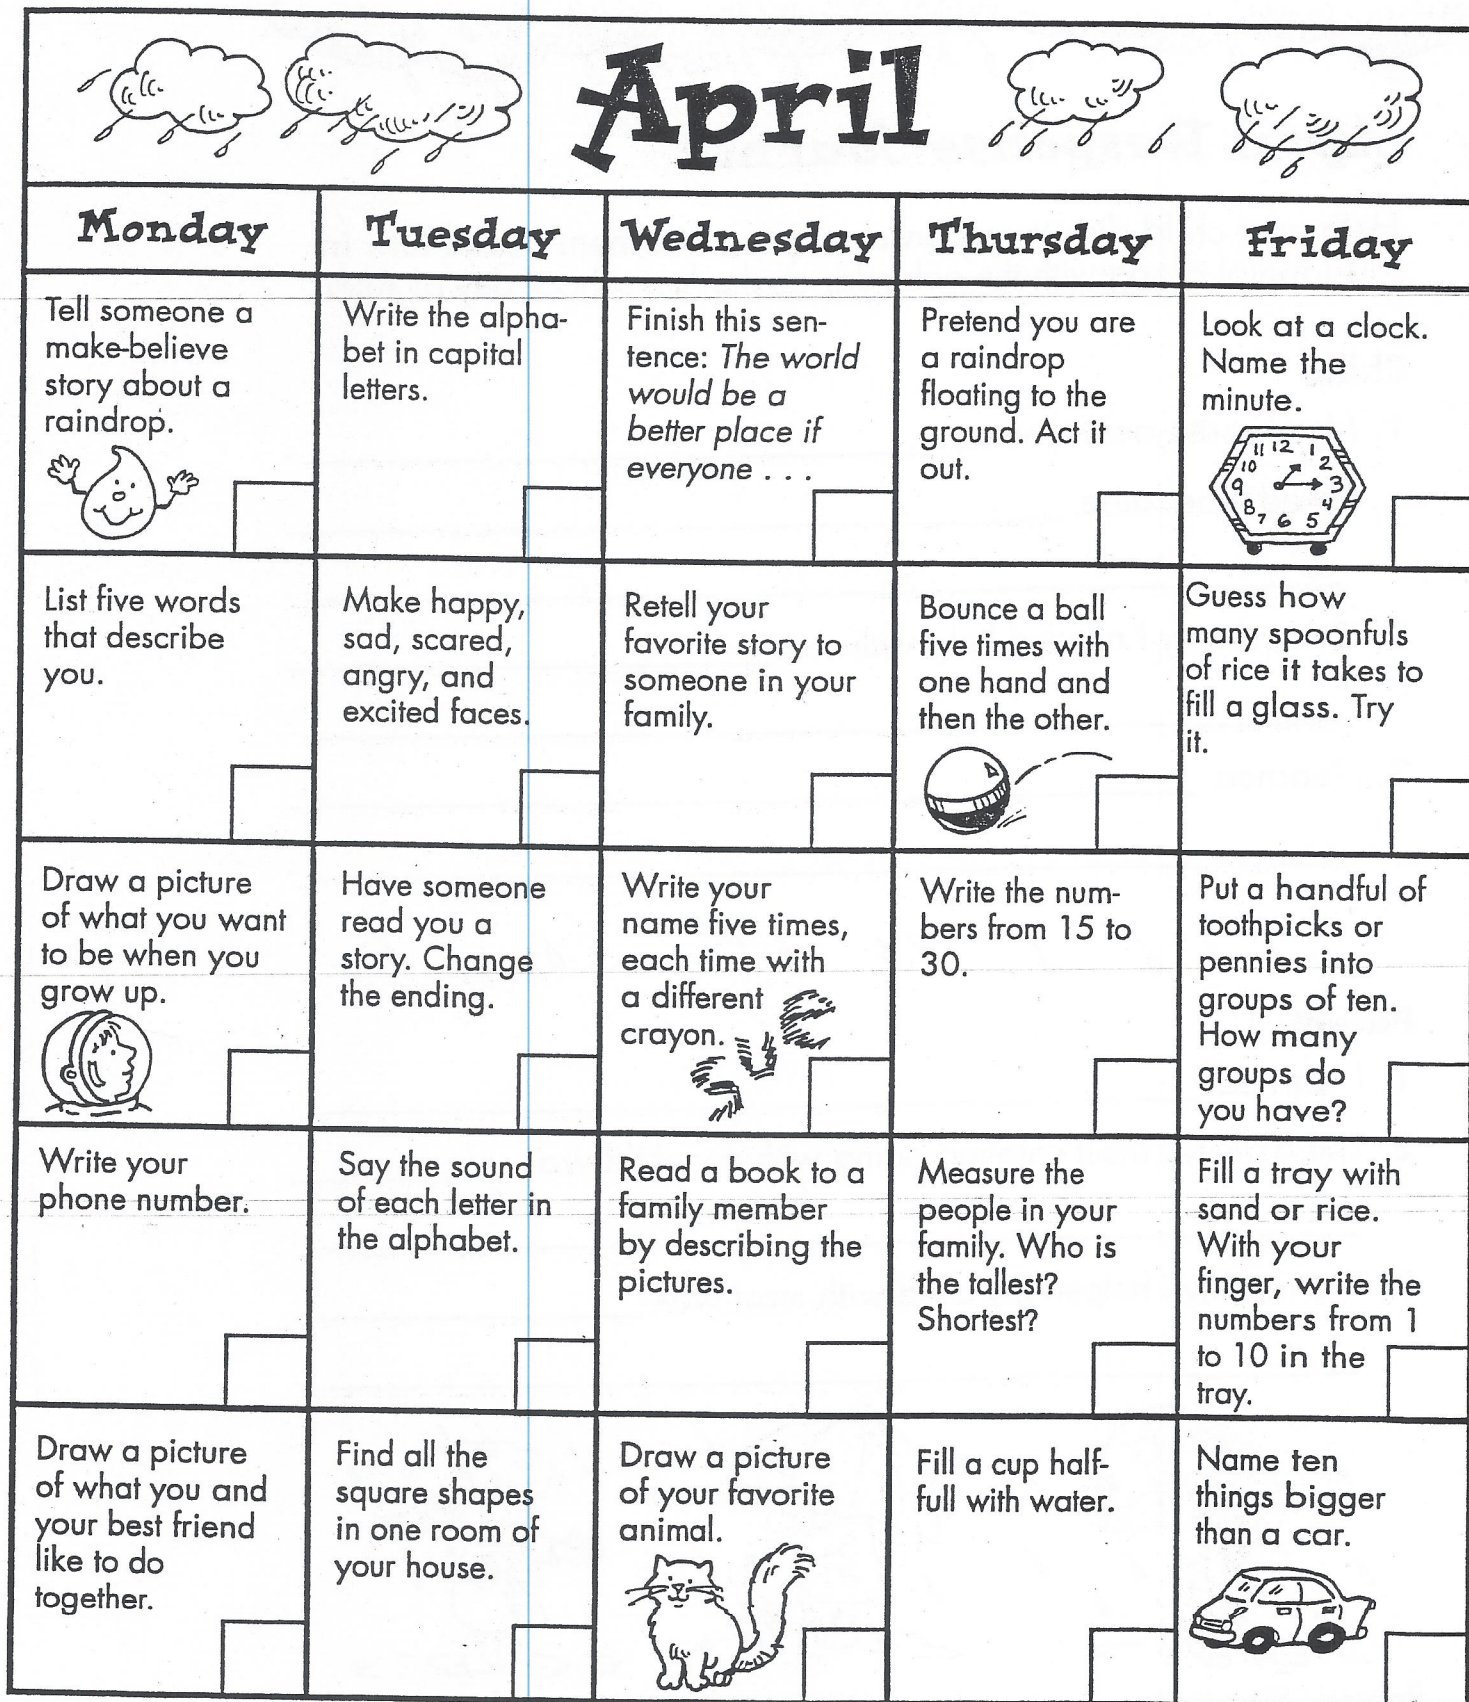 April
Monday
Tuesday
Wednesday
Thursday
Friday
Tell someone a
make-believe
story about a
raindrop.
Write the alpha-
bet in capital
letters.
Finish this sen-
tence: The world
would be a
better place if
everyone . . .
Pretend you are
a raindrop
floating to the
ground. Act it
out.
Look at a clock.
Name the
minute.
11 12 1
10 2
9 3
8 4
7 6 5
List five words
that describe
you.
Make happy,
sad, scared,
angry, and
excited faces.
Retell your
favorite story to
someone in your
family.
Bounce a ball
five times with
one hand and
then the other.
Guess how
many spoonfuls
of rice it takes to
fill a glass. Try
it.
Draw a picture
of what you want
to be when you
grow up.
Have someone
read you a
story. Change
the ending.
Write your
name five times,
each time with
a different
crayon.
Write the num-
bers from 15 to
30.
Put a handful of
toothpicks or
pennies into
groups of ten.
How many
groups do
you have?
Write your
phone number.
Say the sound
of each letter in
the alphabet.
Read a book to a
family member
by describing the
pictures.
Measure the
people in your
family. Who is
the tallest?
Shortest?
Fill a tray with
sand or rice.
With your
finger, write the
numbers from 1
to 10 in the
tray.
Draw a picture
of what you and
your best friend
like to do
together.
Find all the
square shapes
in one room of
your house.
Draw a picture
of your favorite
animal.
Fill a cup half-
full with water.
Name ten
things bigger
than a car.